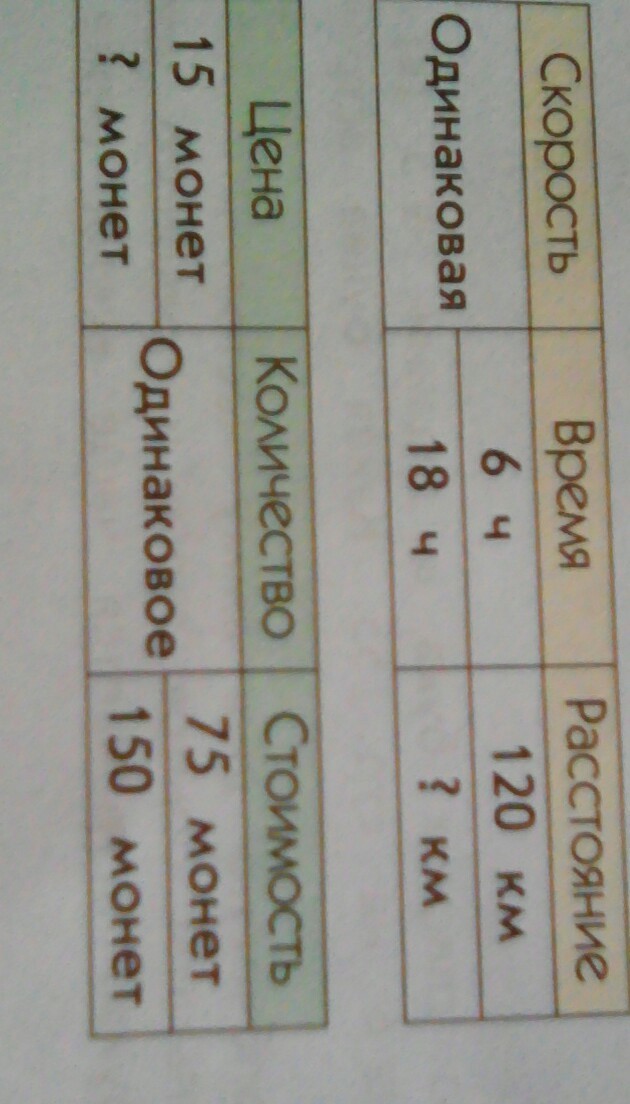 Скорость Время Расстояние
Одинаковая 6 ч 120 км
18 ч ? км
Цена Количество Стоимость
15 монет Одинаковое 75 монет
? монет 150 монет